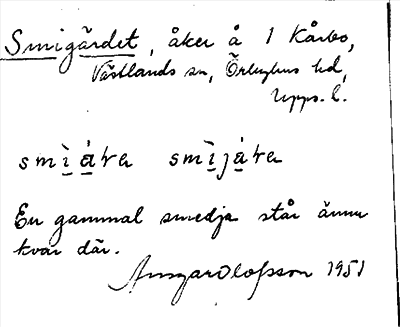 Smigärdet, åker å 1 Kårbo,
Västlands sn, Örbyhus hd,
Upps. l.
smìá'ra smìjá'ra
En gammal smedja står ännu
kvar där.
Ansgar Olofsson 1951